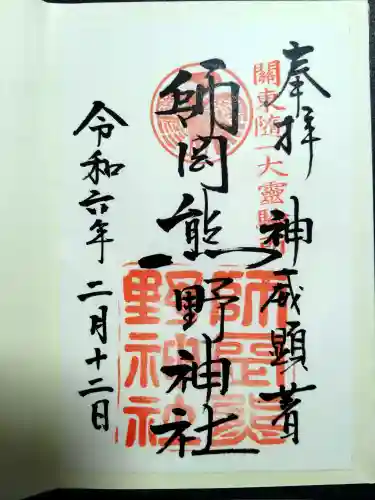 奉拝 神威顕著
關東随一大靈験所
師岡熊野神社
師岡熊野神社
令和六年 二月十二日